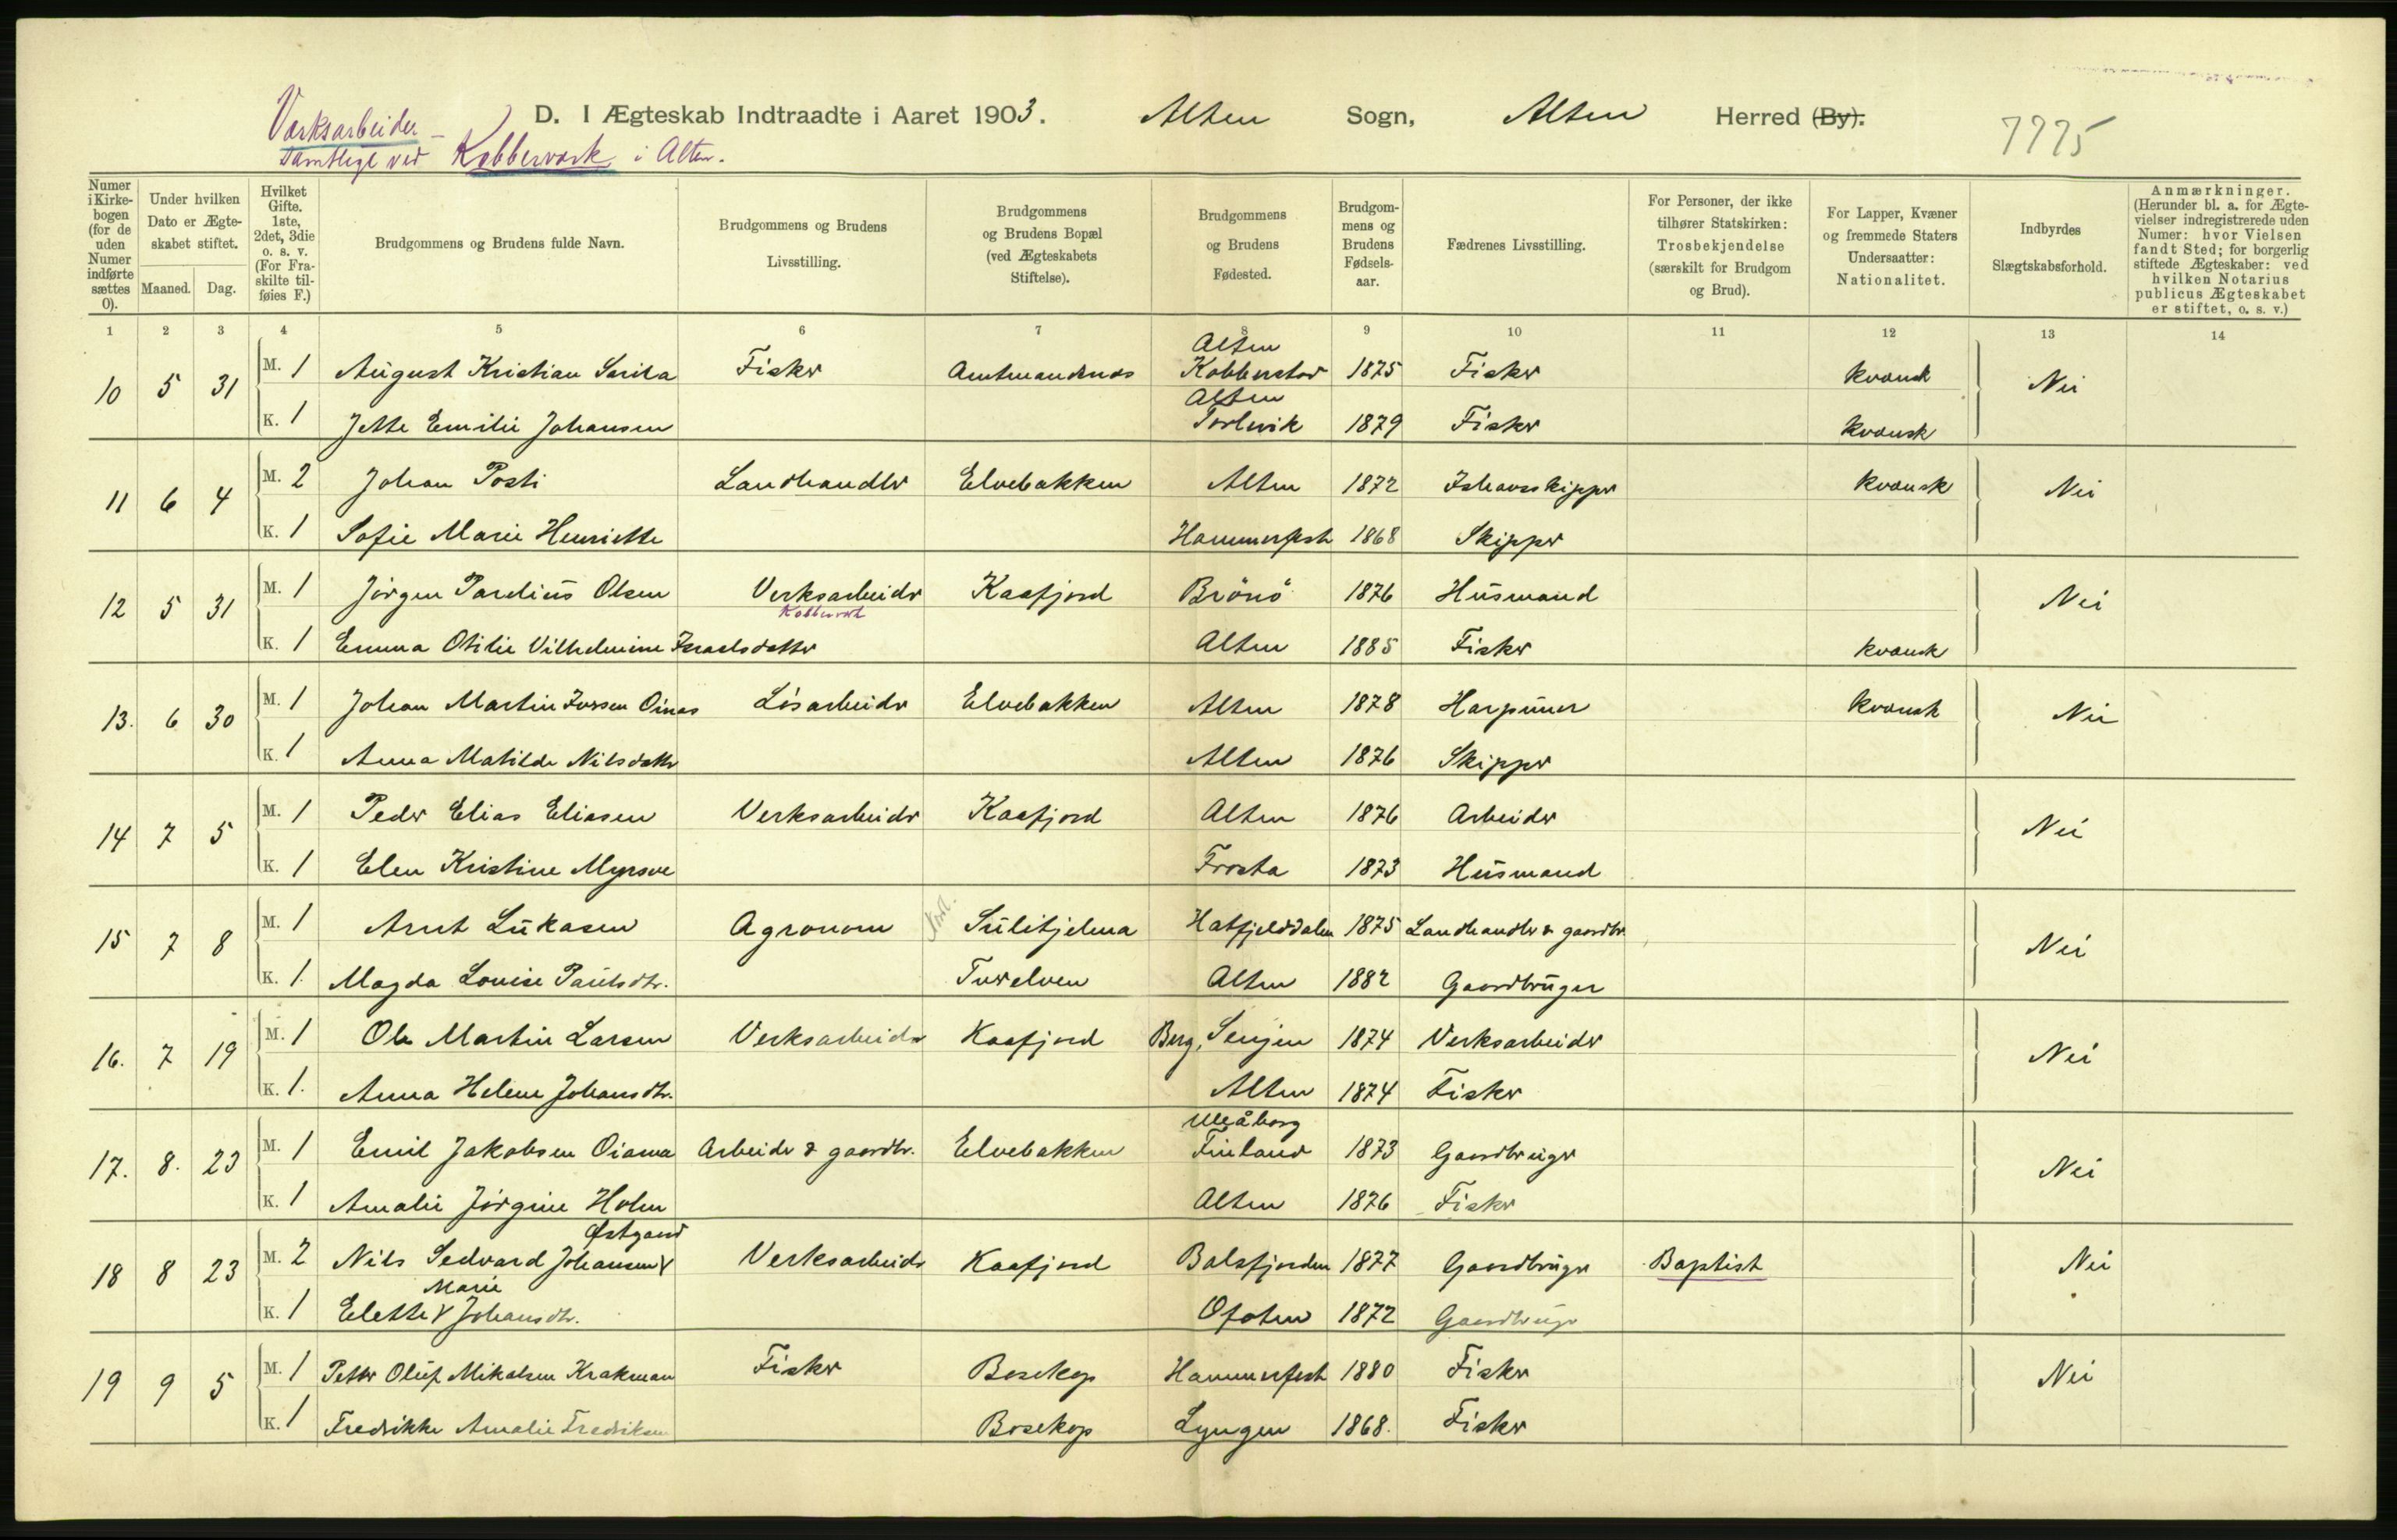 Værksarbeider –
samtlige ved Kobberværk i Alten.
D. I Ægteskab Indtraadte i Aaret 1903. Alten Sogn, Alten Herred (By).
7775
Numer i Kirkebogen (for de uden Numer indførte sættes 0). Under hvilken Dato er Ægteskabet stiftet. Maaned. Dag. Hvilket Gifte. 1ste, 2det, 3die o. s. v. (For Fraskilte tilføies F.) Brudgommens og Brudens fulde Navn. Brudgommens og Brudens Livsstilling. Brudgommens og Brudens Bopæl (ved Ægteskabets Stiftelse). Brudgommens og Brudens Fødested. Brudgommens og Brudens Fødselsaar. Fædrenes Livsstilling. For Personer, der ikke tilhører Statskirken: Trosbekjendelse (særskilt for Brudgom og Brud). For Lapper, Kvæner og fremmede Staters Undersaatter: Nationalitet. Indbyrdes Slægtskabsforhold. Anmærkninger. (Herunder bl. a. for Ægtevielser indregistrerede uden Numer: hvor Vielsen fandt Sted; for borgerlig stiftede Ægteskaber: ved hvilken Notarius publicus Ægteskabet er stiftet, o. s. v.)
1 2 3 4 5 6 7 8 9 10 11 12 13 14
10 5 31 M. 1 August Kristian Sarila Fisker Amtmandsnes Alten 1875 Fisker kvænsk Nei
K. 1 Jette Emilie Johansen Alten 1879 Fisker kvænsk
11 6 4 M. 2 Johan Posti Landhandler Elvebakken Alten 1872 Ishavsskipper kvænsk Nei
K. 1 Sofie Marie Henriette Hammerfest 1868 Skipper
12 5 31 M. 1 Jørgen Pardeliüs Olsen Verksarbeider Kaafjord Brönö 1876 Hüsmand Nei
Kobberverk
K. 1 Emma Otilie Vilhelmine Israelsdatter Alten 1885 Fisker kvænsk
13. 6 30 M. 1 Johan Martin Oinas Løsarbeider Elvebakken Alten 1878 Harpüner kvænsk Nei
K. 1 Anna Matilde Nilsdatter Alten 1876 Skipper
14 7 5 M. 1 Peder Elias Eliasen Verksarbeider Kaafjord Alten 1876 Arbeider Nei
K. 1 Elen Kristine Myrsve Frosta 1873 Hüsmand
15 7 8 M. 1 Arnt Lükasen Agronom Sülitjelma Hatfjelddalen 1875 Landhandler & gaardbr. Nei
K. 1. Magda Louise Paülsdtr. Tverelven Alten 1882 Gaardbrüger
16. 7 19 M. 1 Ole Martin Larsen Verksarbeider Kaafjord Berg, Senjen 1874 Verksarbeider Nei
K. 1. Anna Helene Johansdtr. Alten 1874 Fisker
Uleåborg
17. 8. 23 M. 1 Emil Jakobsen Oiama Arbeider & gaardbr. Elvebakken Finland 1873 Gaardbrüger Nei
K. 1 Amalie Jørgine Holm Alten 1876 Fisker
Østgaard
18 8 23 M. 2 Nils Sedvard Johansen Verksarbeider Kaafjord Balsfjorden 1877 Gaardbrüger Baptist Nei
Marie
K. 1 Elette Johansdtr. Ofoten 1872 Gaardbrüger
19 9 5 M. 1 Petter Olüf Mikalsen Krakman Fisker Bosekop Hammerfest 1880 Fisker Nei
K. 1 Fredrikke Amalie Fredriksen Bosekop Lyngen 1868. Fisker